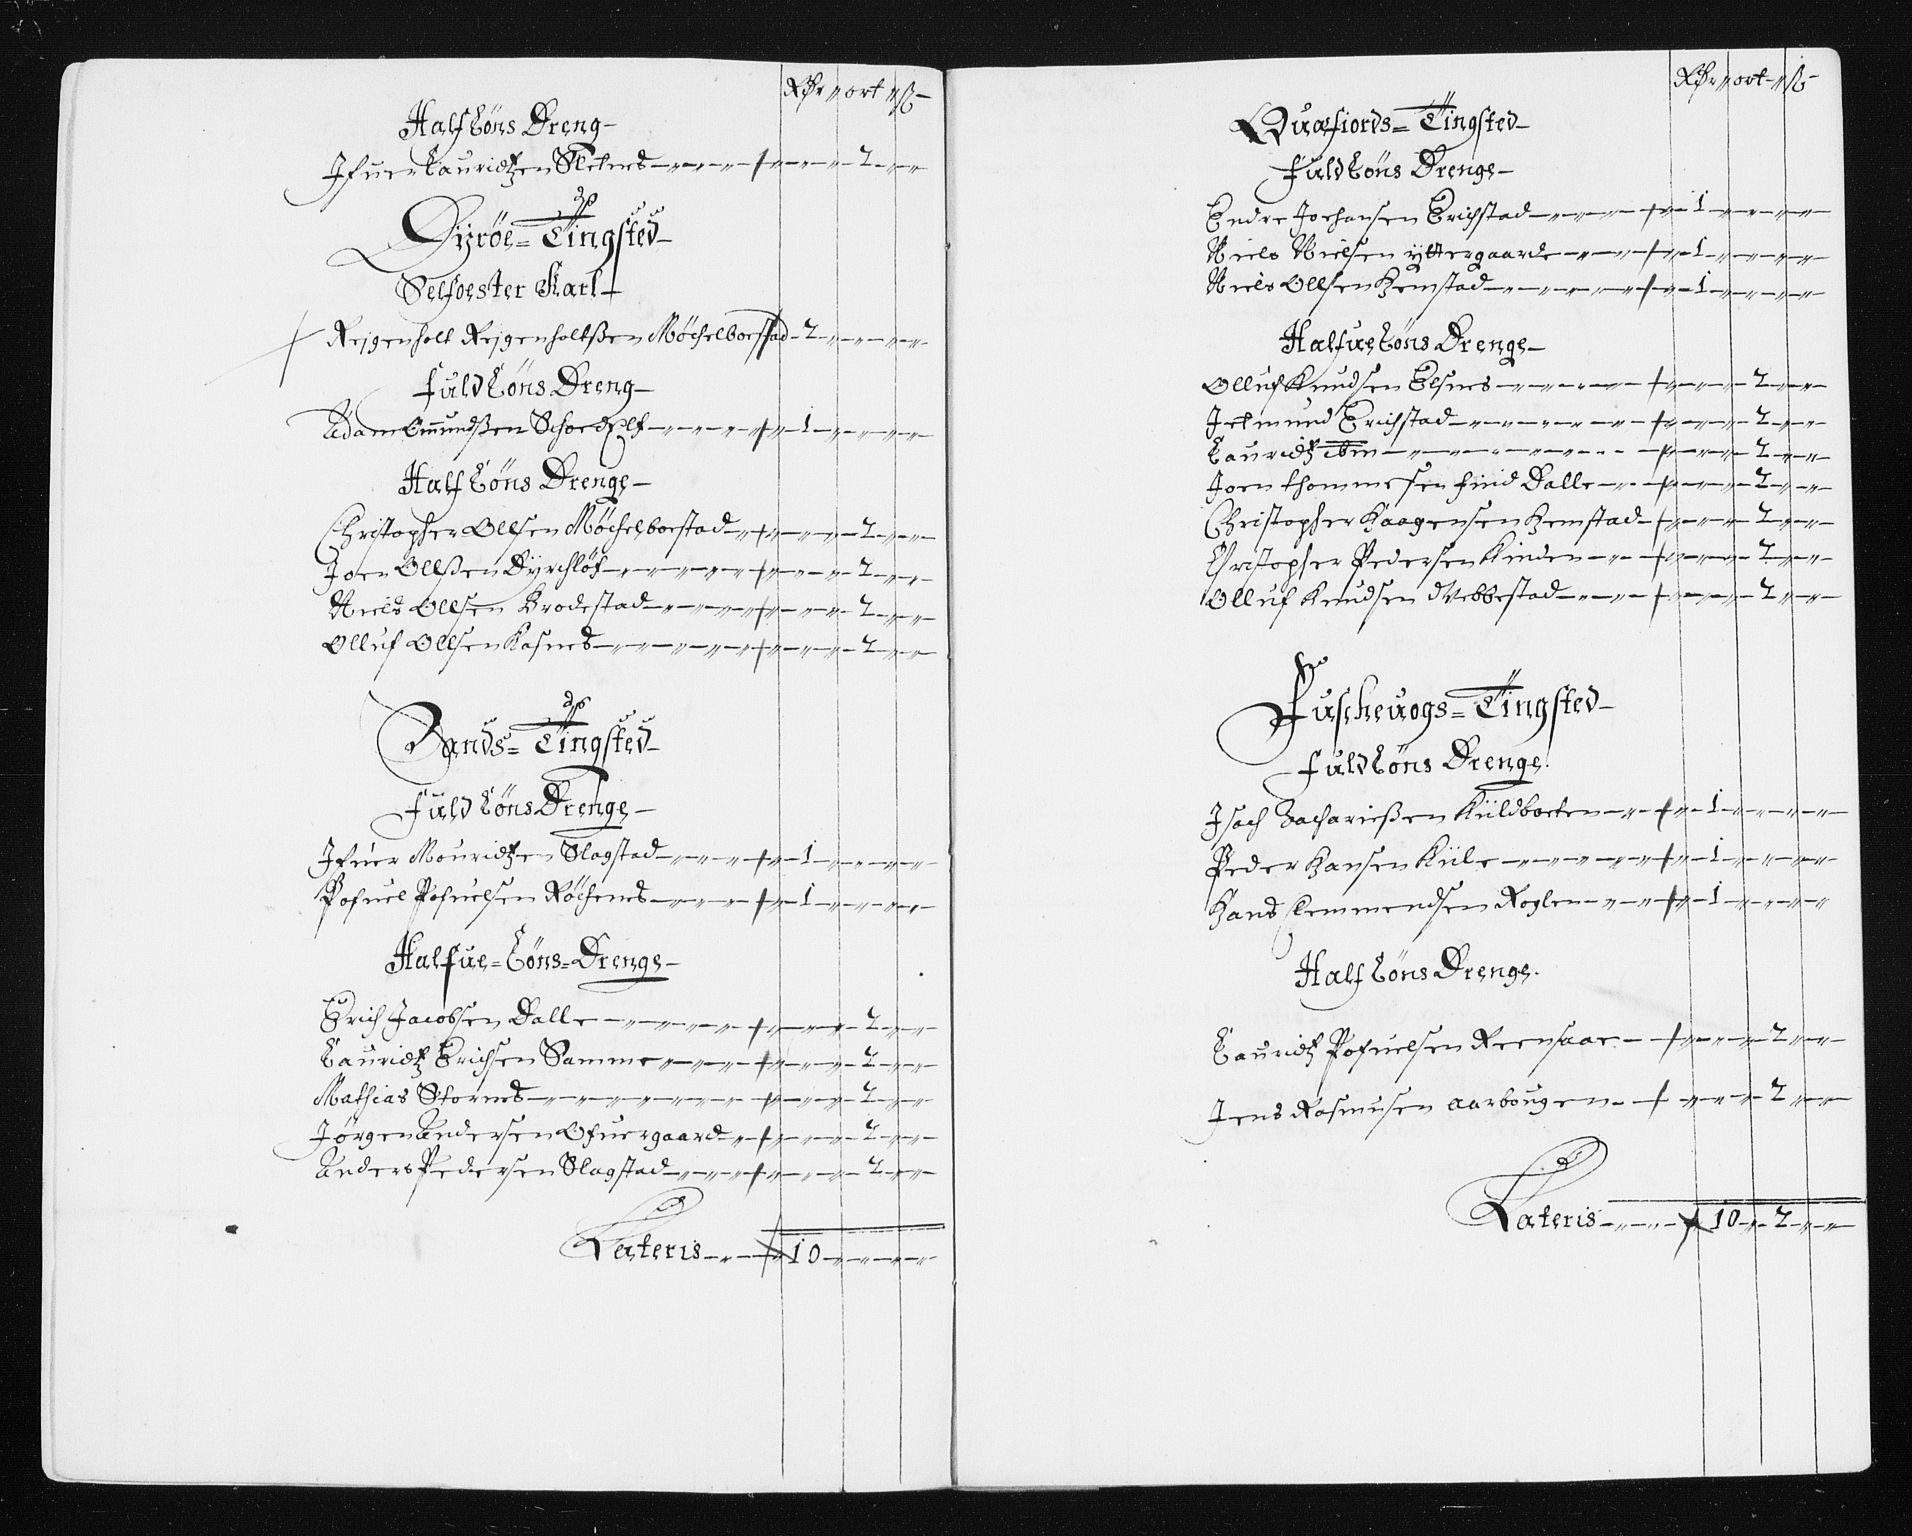 Rdr ort ß
Half Löns Dreng
Jfuer Lauridtzen Sletnes 2
Dyröe= Tingsted
Selfoester Karl
Rejgenholt Rejgenholtßen Möchelboestad 2
fuld Löns Dreng
Adam Omundßen Schoed Elf 1
Half Löns Drenge
Christopher Ollsen Möchelboestad 2
Joen Ollßen Dyrchlöf 2
Niels Ollsen Brodestad 2
Olluf Ollsen Kasnes 2
Sands= Tingsted
fuld Löns Drenge
Jfuer Mouridtzen Slagstad 1
Pofuel Pofuelsen Röchenes 1
Halfue= Löns= Drenge
Erich Jacobsen Dalle 2
Lauridtz Erichsen Samme 2
Mathias Stornes 2
Jörgen Andersen Ofuergaard 2
Anders Pedersen Slagstad 2
Lateris 10
Rdr ort ß
Quæfiords= Tingsted
fuld Löns Drenge
Endre Jochansen Erichstad 1
Niels Nielsen yttergaarde 1
Niels Ollsen Hemstad 1
Halfue Löns Drenge
Olluf Knudsen Elsnes 2
Jetmund Erichstad 2
Lauridtz ibm 2
Joen thommesen find Dalle 2
Christopher Haagensen Hemstad 2
Christopher Pedersen Kinden 2
Olluf Knudsen Vebbestad 2
Fuscheuogs= Tingsted
fuld Löns Drenge
Jsach Zacharießen Küldboeten 1
Peder Hansen Kiile 1
Hans Clemmendsen Roglen 1
Half Löns Drenge
Lauridtz Pofuelsen Reensaae 2
Jens Rasmusen Aarbougen 2
Lateris 10 2